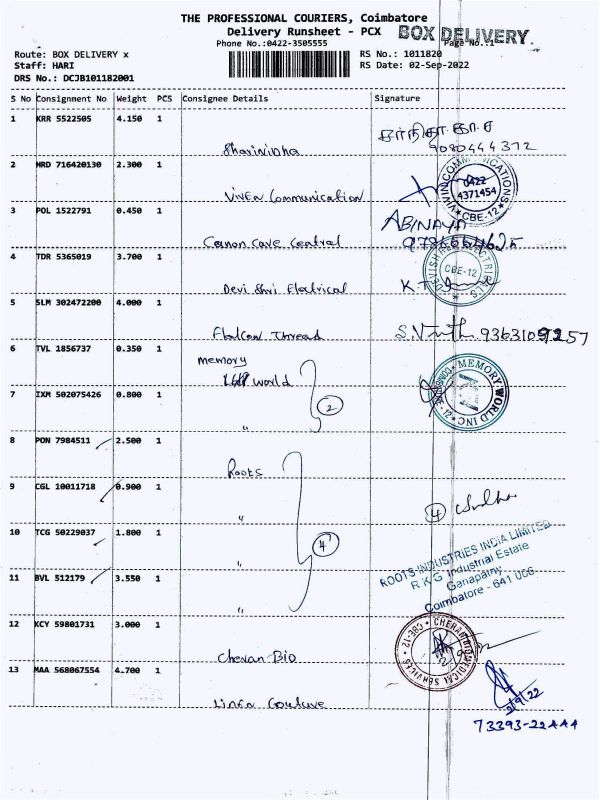 THE PROFESSIONAL COURIERS, Coimbatore
Delivery Runsheet - PCX
BOX DELIVERY
Phone No.:0422-3505555
Page No.:1
Route: BOX DELIVERY x
RS No.: 1011820
Staff: HARI
RS Date: 02-Sep-2022
DRS No.: DCJB101182001
S No Consignment No Weight PCS Consignee Details Signature
1 KRR 5522505 4.150 1
9080444372
Sharinidha
2 MRD 716420130 2.300 1
VIVIN COMMUNICATIONS
0422
4371454
CBE-12
Viven Communication
3 POL 1522791 0.450 1
ABINAYA
Canon Care Central
4 TDR 5365019 3.700 1
CBE-12
Devi Shri Electrical
K.T.
5 SLM 302472200 4.000 1
Thread
6 TVL 1856737 0.350 1
memory
world
MEMORY WORLD INC
7 IXM 502075426 0.800 1
2
"
8 PON 7984511 2.500 1
Roots
9 CGL 10011718 0.900 1
4 Sudha
"
10 TCG 50229037 1.800 1
4
"
ROOTS INDUSTRIES INDIA LIMITED
R K G Industrial Estate
Ganapathy
Coimbatore - 641 006
11 BVL 512179 3.550 1
"
12 KCY 59801731 3.000 1
CBE-12
Cheran Bio
13 MAA 568067554 4.700 1
2/9/22
Linen Couture
73393-22444